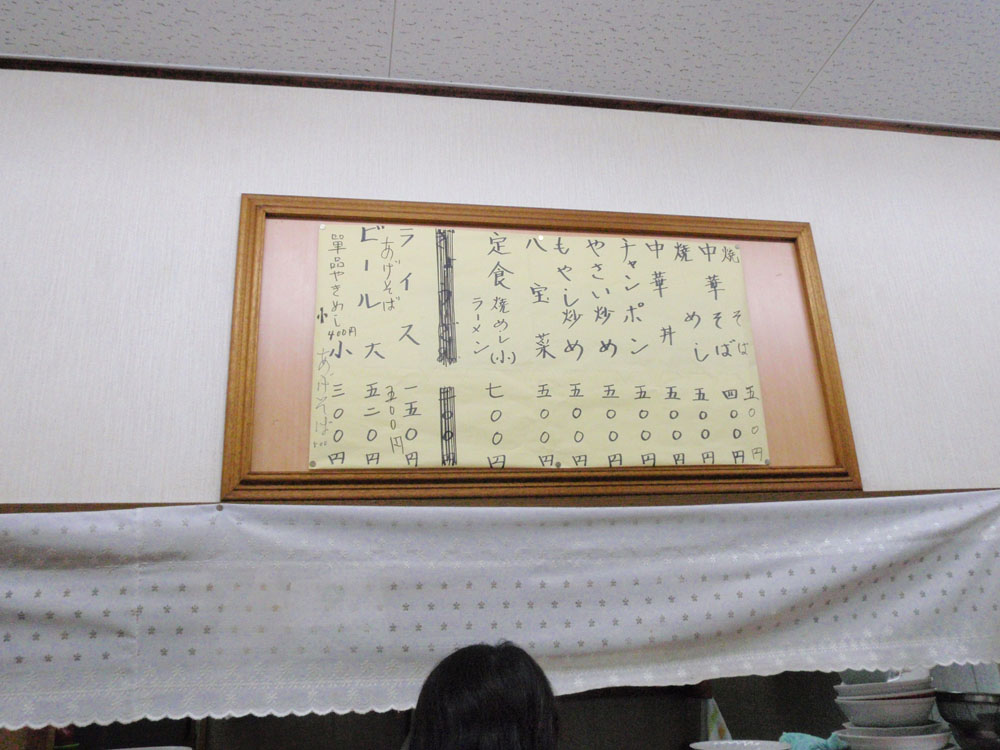 焼そば 五〇〇円
中華そば 四〇〇円
焼めし 五〇〇円
中華丼 五〇〇円
チャンポン 五〇〇円
やさい炒め 五〇〇円
もやし炒め 五〇〇円
八宝菜 五〇〇円
定食 焼めし(小) ラーメン 七〇〇円
ライス 一五〇円
あげそば 五〇〇円
ビール 大 五二〇円
小 三〇〇円
単品やきめし
小 400円
あげそば